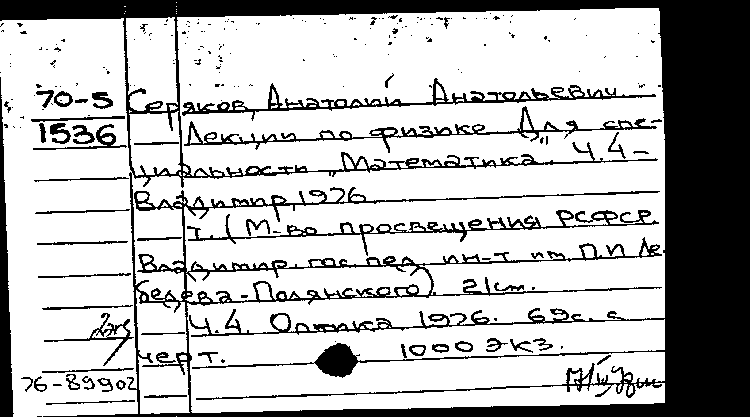 70-5 Серяков, Анатолий Анатольевич.
1536 Лекции по физике Для спе-
циальности „Математика". Ч.4-
Владимир, 1976
т. (М-во просвещения РСФСР.
Владимир. гос. пед. ин-т им. П.И Ле-
бедева-Полянского) 21см.
Ч.4. Оптика. 1976. 69с. с
черт. 1000 экз.
76-89902